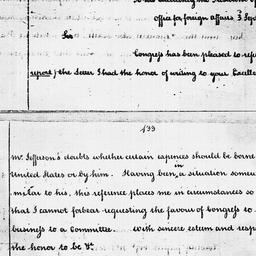 office for foreign affairs 3 Sep
Sir
Congress has been pleased to refe
report, the letter I had the honor of writing to your Excelle
133
Mr. Jefferson's doubts whether certain expences should be borne
United States or by him. Having been in a situation somew
milar to his, this reference places me in circumstances so
that I cannot forbear requesting the favour of Congress to
business to a Committee. With sincere esteem and resp
the honor to be &c.